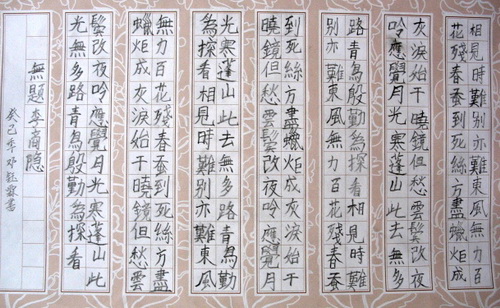 相見時難別亦難東風無力百
花殘春蚕到死絲方盡蠟炬成
灰淚始干曉鏡但愁雲鬢改夜
吟應覺月光寒蓬山此去無多
路青鳥殷勤為探看相見時難
別亦難東風無力百花殘春蚕
到死絲方盡蠟炬成灰淚始干
曉鏡但愁雲鬢改夜吟應覺月
光寒蓬山此去無多路青鳥勤
為探看相見時難別亦難東風
無力百花殘春蚕到死絲方盡
蠟炬成灰淚始干曉鏡但愁雲
鬢改夜吟應覺月光寒蓬山此
去無多路青鳥殷勤為探看
無題李商隱
癸巳年邓書